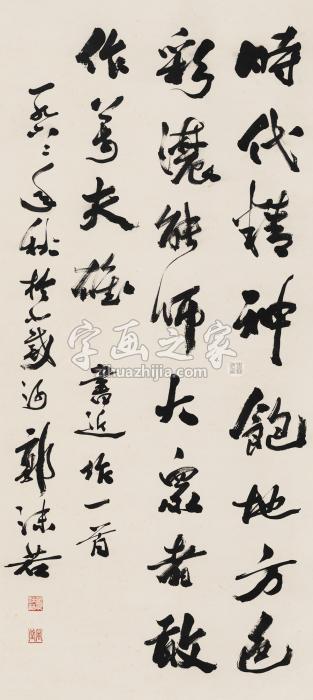 時代精神飽地方色
彩濃能師大衆者敢
作萬夫雄 書近作一首
一九六二年秋於北戴河 郭沫若
字画之家
zihuazhijia.com